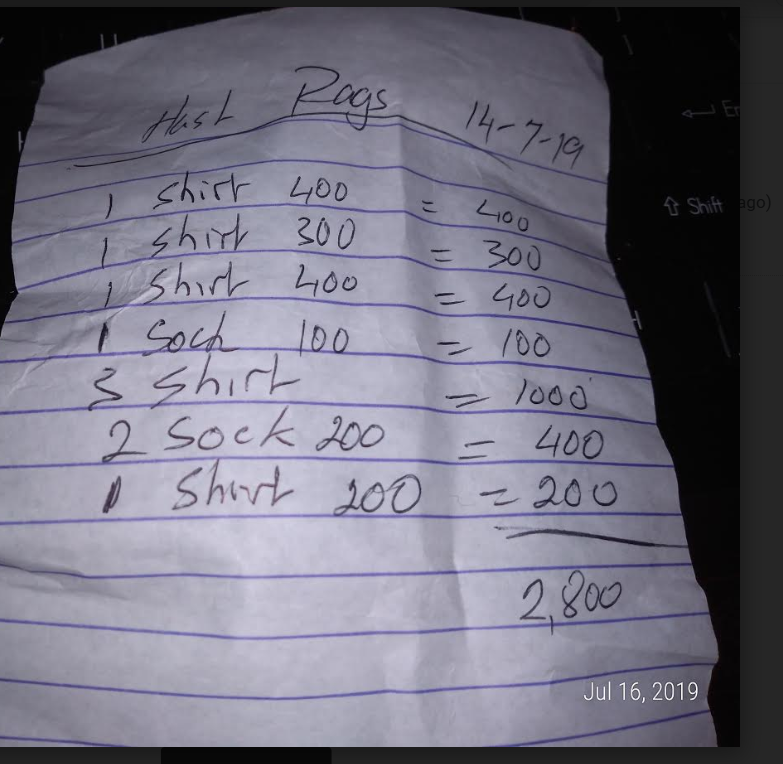 Hust Rags 14-7-19
1 shirt 400 = 400
1 shirt 300 = 300
1 Shirt 400 = 400
1 Sock 100 = 100
3 Shirt = 1000
2 Sock 200 = 400
1 Shirt 200 = 200
2,800
Jul 16, 2019
Shift
ago)